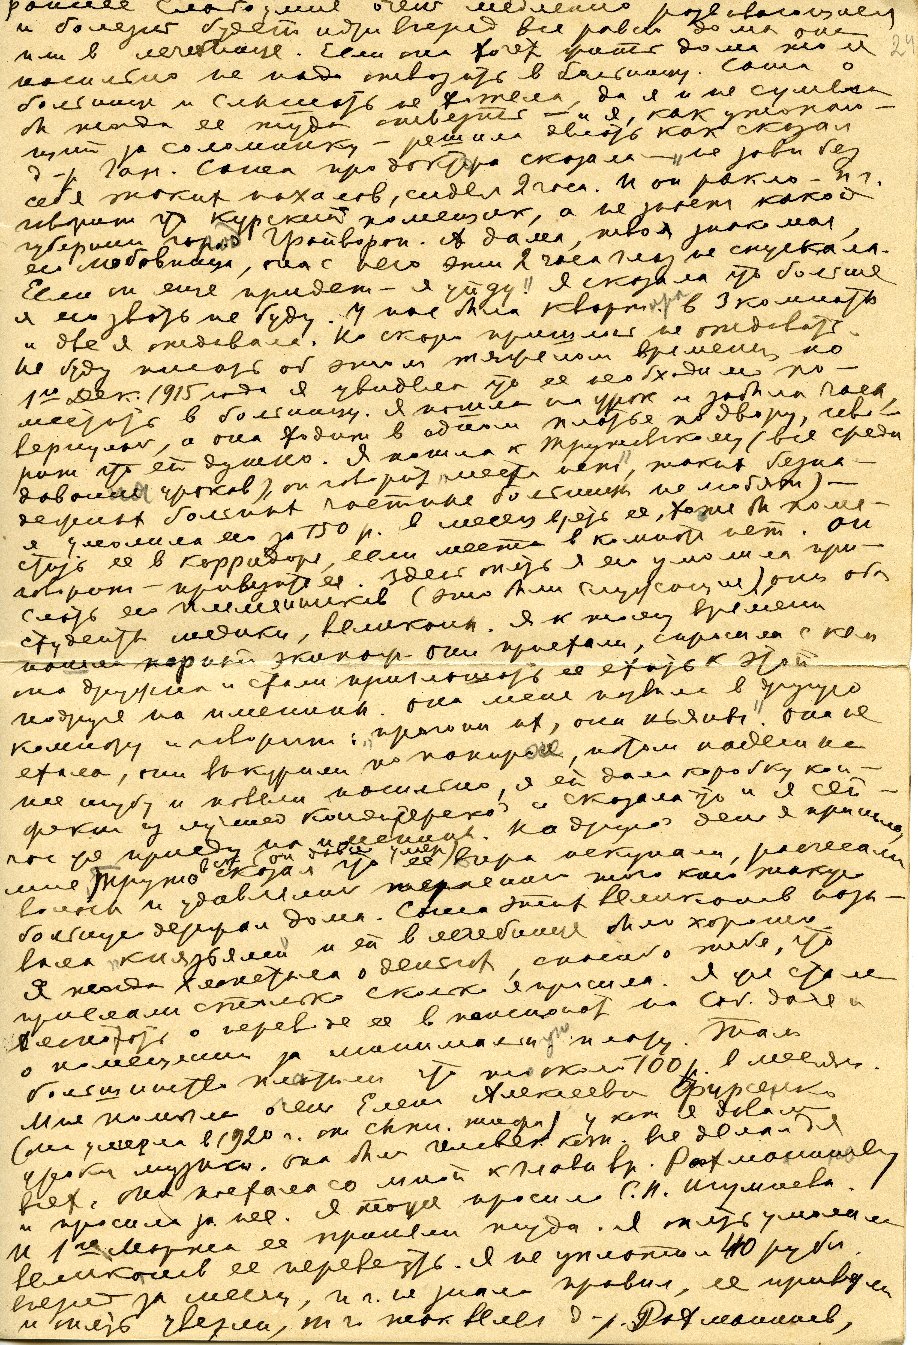 раннее слабоумие очень медленно развивающееся
и болезнь будет идти вперед все равно дома она
или в лечебнице. Если она хочет жить дома то и
насильно не надо отвозить в больницу. Саша о
больнице и слышать не хотела, да я и не сумела
бы тогда ее туда отвезти — и я, как утопаю-
щий за соломинку — решила делать как сказал
д-р Ган. Саша про доктора сказала — "не зови без
себя таких нахалов, сидел 2 часа. И он ракло — п.ч.
говорит что Курский помещик, а не знает какой
губернии город Грайворон. А дама, твоя знакомая,
его любовница, она с него эти 2 часа глаз не спускала.
Если он еще придет — я уйду". Я сказала что больше
я его звать не буду. У нас была квартира в 3 комнаты
и две я отдавала. Но скоро пришлось не отдавать.
Не буду писать об этом тяжелом времени, но
1го Дек. 1915 года я увидела что ее необходимо по-
местить в больницу. Я пошла на урок и забыла часы,
вернулась, а она ходит в одном платье по двору, гово-
рит что ей душно. Я пошла к Трутовскому (все среди
даваемых уроков), он говорит "места нет", таких безна-
дежных больных частные больницы не любят) —
я умолила его за 150 р. в месяц взять ее, хотя бы поме-
стить ее в корридоре, если места в комнате нет. Он
говорит — привезите ее. Здесь опять я его умолила при-
слать его племянников (это были служащие), они оба
студенты медики, великаны. Я к тому времени
наняла парный экипаж они приехали, спросила с кем
она дружна и стали приглашать ее ехать к этой
подруге на именины. Она меня позвала в другую
комнату и говорит: "прогони их, они пьяные". Она не
ехала, они выкурили по папиросе, потом надели на
нее шубу и повели насильно, я ей дала коробку кон-
фект из лучшей кондитерской и сказала что и я сей-
час же приеду на именины. На другой день я пришла,
мне Трутов. (он давно умер) сказал что ее вчера искупали, расчесали
волосы и удивлялись терпению того кто такую
больную держал дома. Саша этих великанов назы-
вала "князьями" и ей в лечебнице было хорошо.
Я тогда хлопотала о деньгах, спасибо тебе, что
присылали столько сколько я просила. Я уже стала
хлопотать о переводе ее в пансионат на Саб. даче и
о помещении за минимальную плату. Там
большинство платили что то около 100 р. в месяц.
Мне помогла очень Елена Алексеевна Фирсенко
(она умерла в 1920 г. от сыпн. тифа) у кот. я давала
уроки музыки. Она была человек кот. все делал для
всех. Она поехала со мной к главн. вр. Рахманинову
и просила за нее. Я тоже просила С. Н. Игумнова.
И 1го Марта ее приняли туда. Я опять умолила
великанов ее перевезти. Я не уплатила 40 рубл.
вперед за месяц, п.ч. не знала правил, ее привезли
и опять увезли, т.ч. так велел д-р. Рахманинов,